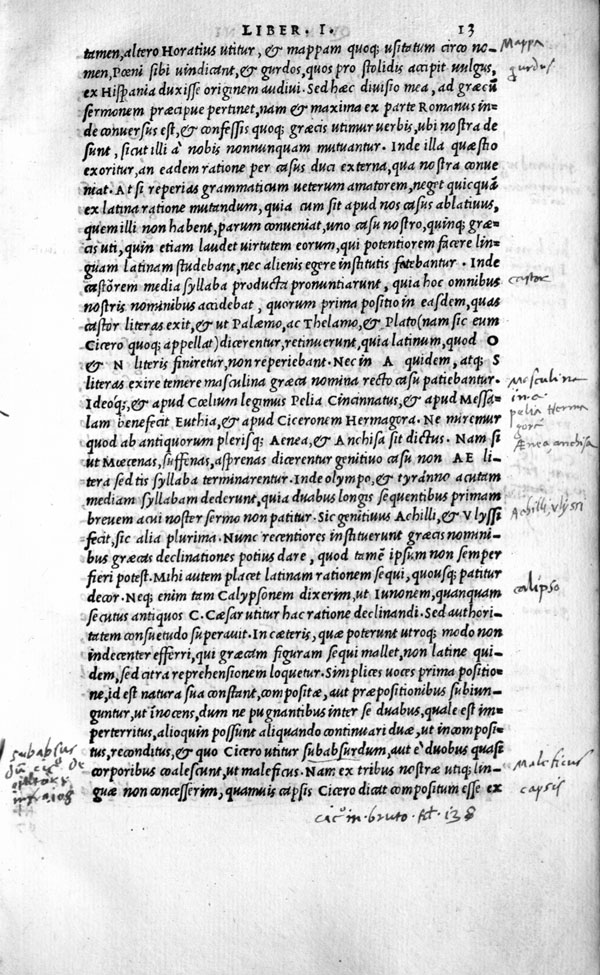 LIBER. I. 13
tamen, altero Horatius utitur, & mappam quoq; usitatum circo no-
men, Pœni sibi uindicant, & gurdos, quos pro stolidis accipit uulgus,
ex Hispania duxisse originem audiui. Sed hæc diuisio mea, ad græcũ
sermonem præcipue pertinet, nam & maxima ex parte Romanus in-
de conuersus est, & confessis quoq; græcis utimur uerbis, ubi nostra de
sunt, sicut illi à nobis nonnunquam mutuantur. Inde illa quæstio
exoritur, an eadem ratione per casus duci externa, qua nostra conue
niat. At si reperias grammaticum ueterum amatorem, neget quicquã
ex latina ratione mutandum, quia cum sit apud nos casus ablatiuus,
quem illi non habent, parum conueniat, uno casu nostro, quinq; græ-
cis uti, quin etiam laudet uirtutem eorum, qui potentiorem facere lin-
guam latinam studebant, nec alienis egere institutis fatebantur. Inde
castôrem media syllaba producta pronuntiarunt, quia hoc omnibus
nostris nominibus accidebat, quorum prima positio in easdem, quas
castor literas exit, & ut Palæmo, ac Thelamo, & Plato (nam sic eum
Cicero quoq; appellat) dicerentur, retinuerunt, quia latinum, quod O
& N literis finiretur, non reperiebant. Nec in A quidem, atq; S
literas exire temere masculina græca nomina recto casu patiebantur.
Ideoq;, & apud Cœlium legimus Pelia Cincinnatus, & apud Messa-
lam benefecit Euthia, & apud Ciceronem Hermagora. Ne miremur
quod ab antiquorum plerisq; Aenea, & Anchisa sit dictus. Nam si
ut Mœcenas, suffenas, asprenas dicerentur genitiuo casu non AE li-
tera sed tis syllaba terminarentur. Inde olympo, & tyránno acutam
mediam syllabam dederunt, quia duabus longis sequentibus primam
breuem acui noster sermo non patitur. Sic genitiuus Achilli, & Vlyssi
fecit, sic alia plurima. Nunc recentiores instituerunt græcis nomini-
bus græcas declinationes potius dare, quod tamẽ ipsum non semper
fieri potest. Mihi autem placet latinam rationem sequi, quousq; patitur
decor. Neq; enim tam Calypsonem dixerim, ut Iunonem, quanquam
secutus antiquos C. Cæsar utitur hac ratione declinandi. Sed authori-
tatem consuetudo superauit. In cæteris, quæ poterunt utroq; modo non
indecenter efferri, qui græcam figuram sequi mallet, non latine qui-
dem, sed citra reprehensionem loquetur. Simplices uoces prima positio-
ne, id est natura sua constant, compositæ, aut præpositionibus subiun-
guntur, ut ĩnocens, dum ne pugnantibus inter se duabus, quale est im-
perterritus, alioquin possunt aliquando continuari duæ, ut incomposi-
tus, reconditus, & quo Cicero utitur subabsurdum, aut è duobus quasi
corporibus coalescunt, ut maleficus. Nam ex tribus nostræ utiq; lin-
guæ non concesserim, quamuis capsis Cicero dicat compositum esse ex
Mappa
gurdus
castor
Masculina
in a
pelia Herma
gora
Ænea, anchisa
Achilli, Vlyssi
calipso
Maleficus
capsis
subabsur
dũ